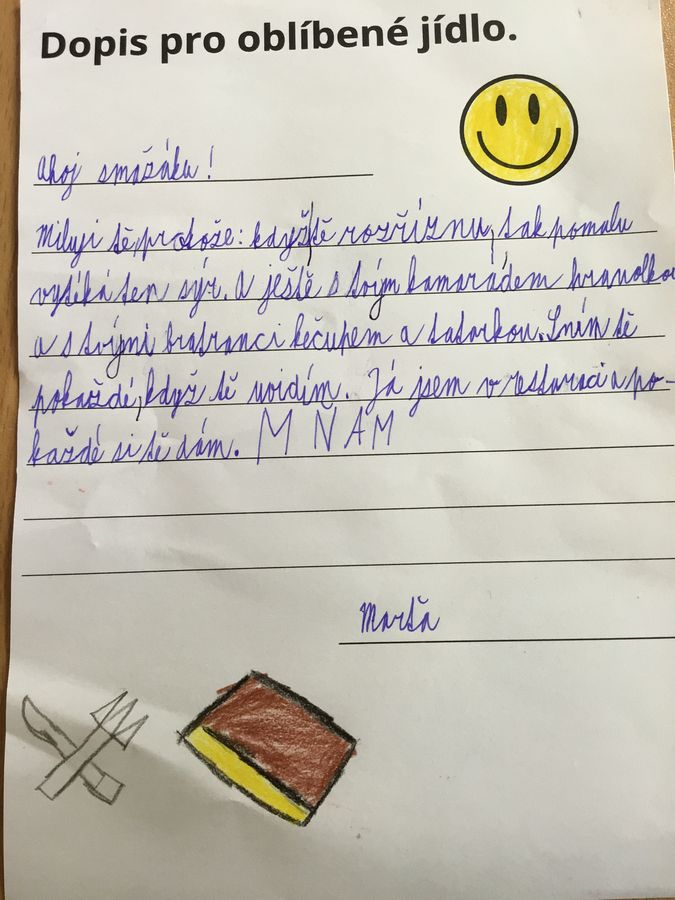 Dopis pro oblíbené jídlo.
Ahoj smažáku!
Miluji tě, protože: když tě rozříznu, tak pomalu
vytíká ten sýr. A ještě s tvým kamarádem hranolkou
a s tvými bratranci kečupem a tatarkou. Sním tě
pokaždé, když tě uvidím. Já jsem v restauraci a po-
každé si tě dám. MŇAM
Marťa